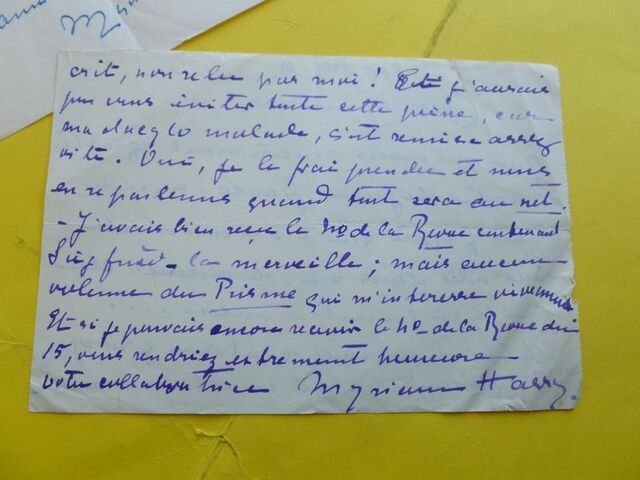 crit, non relu par moi ! Et j'aurais
pu vous éviter toute cette peine, car
ma dactylo malade, s'est remise assez
vite. Oui, je le ferai prendre et nous
en reparlerons quand tout sera au net.
- J'avais bien reçu le no de la Revue contenant
la merveille ; mais aucun
volume du Prisme qui m'intéresse vivement
Et si je pouvais encore recevoir le no de la Revue du
15, vous rendriez extrêmement heureuse
votre collaboratrice Myriam Harry